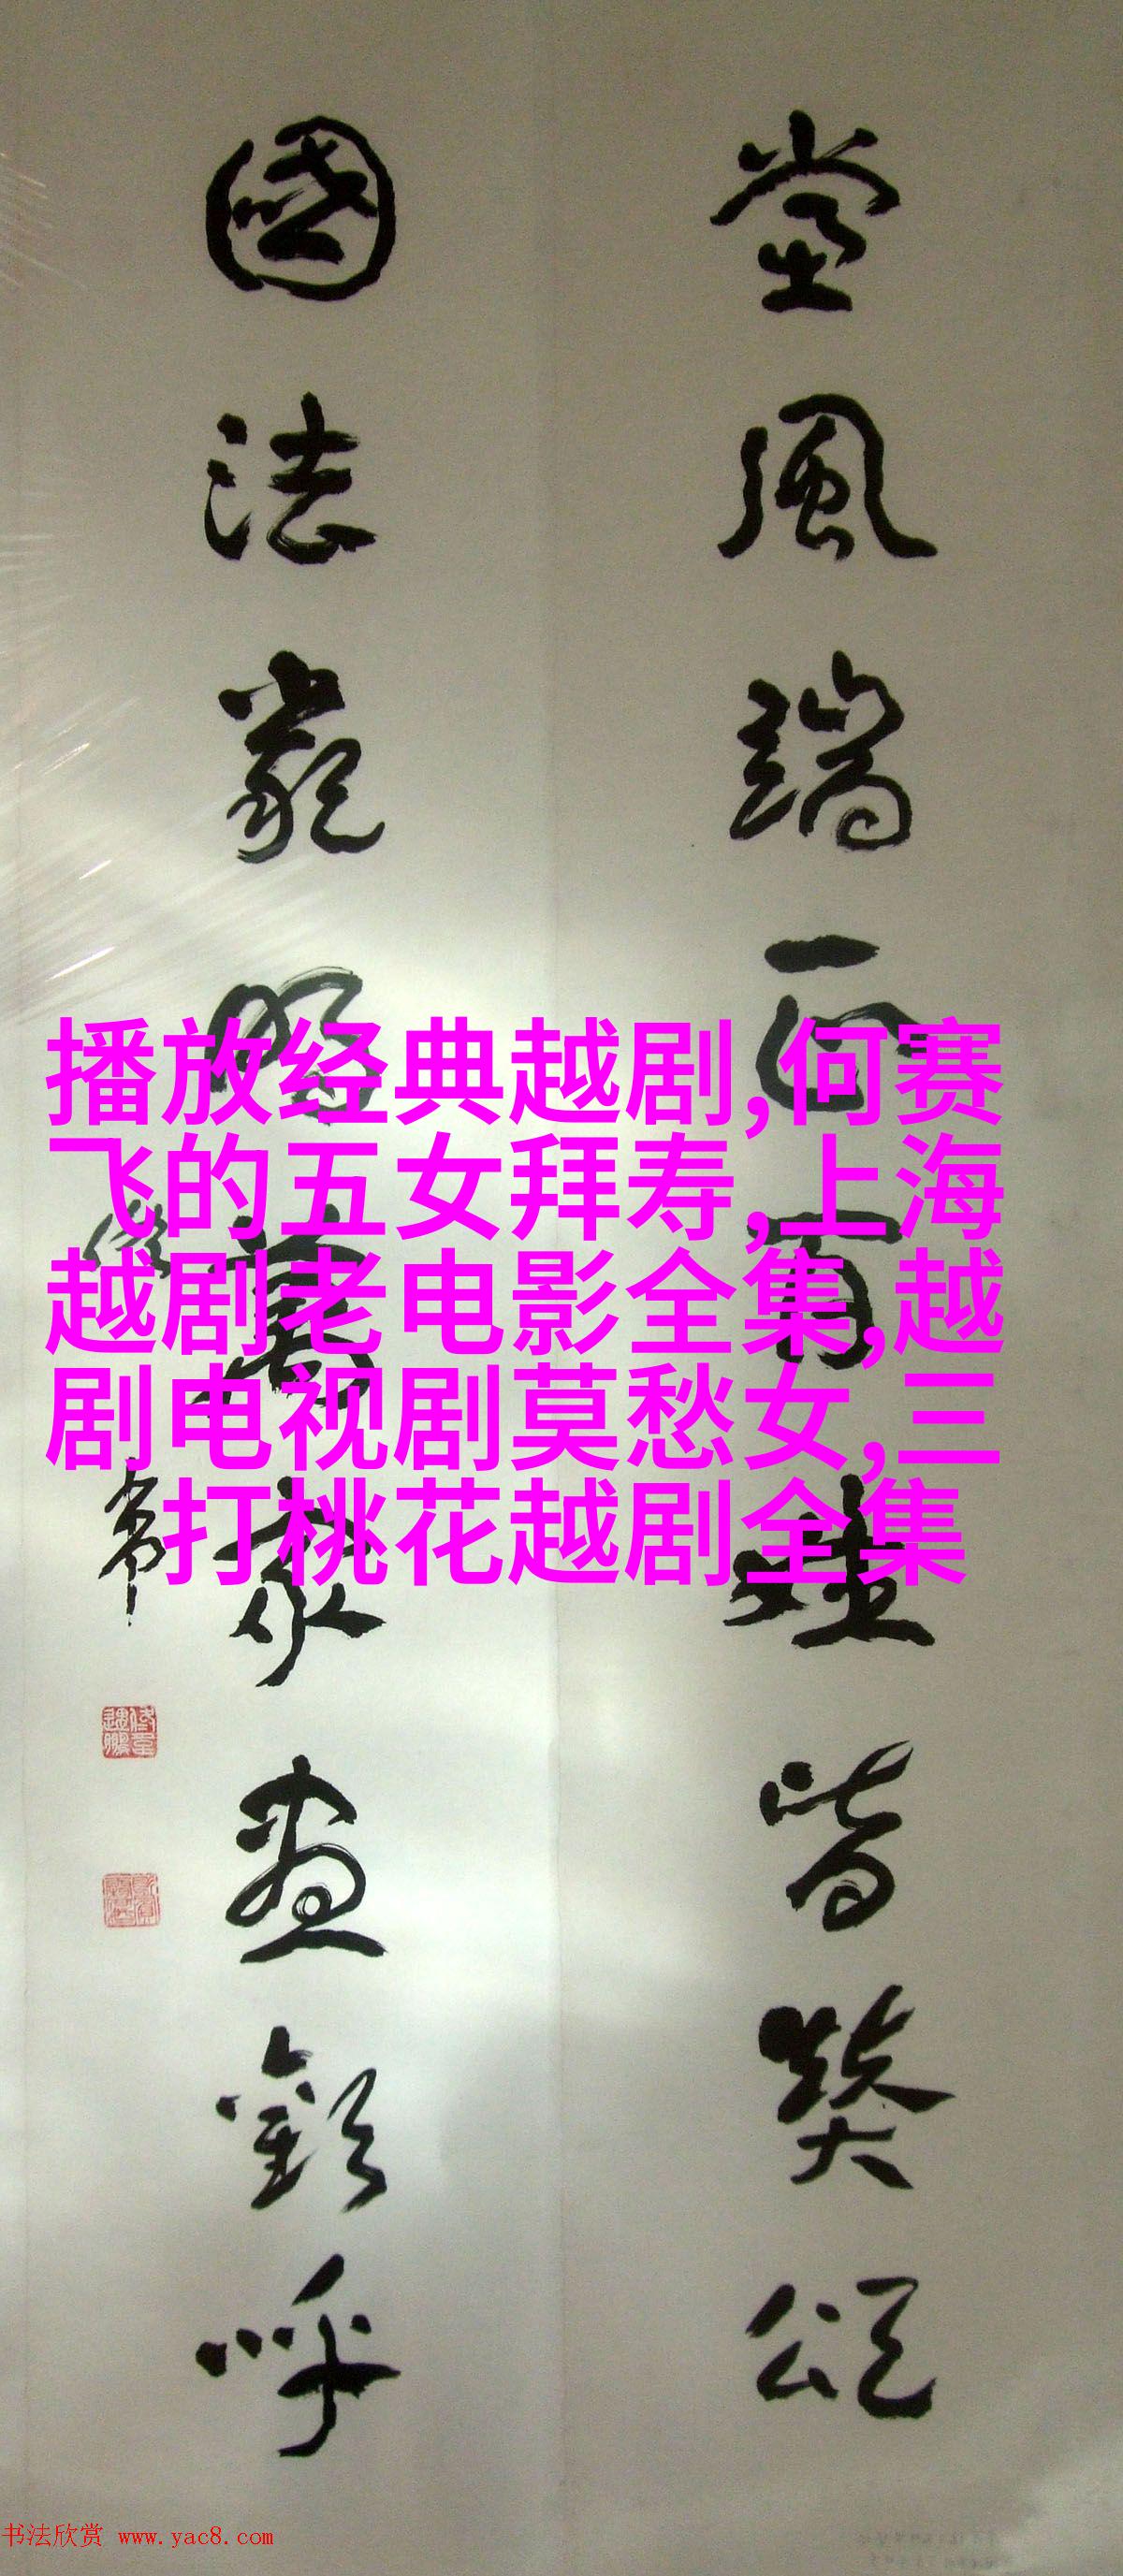 党風端正百姓皆獎頌
國法嚴明萬衆盡歡呼
播放经典越剧,何赛
飞的五女拜寿,上海
越剧老电影全集,越
剧电视剧莫愁女,三
打桃花越剧全集
书法欣赏 www.yac8.com